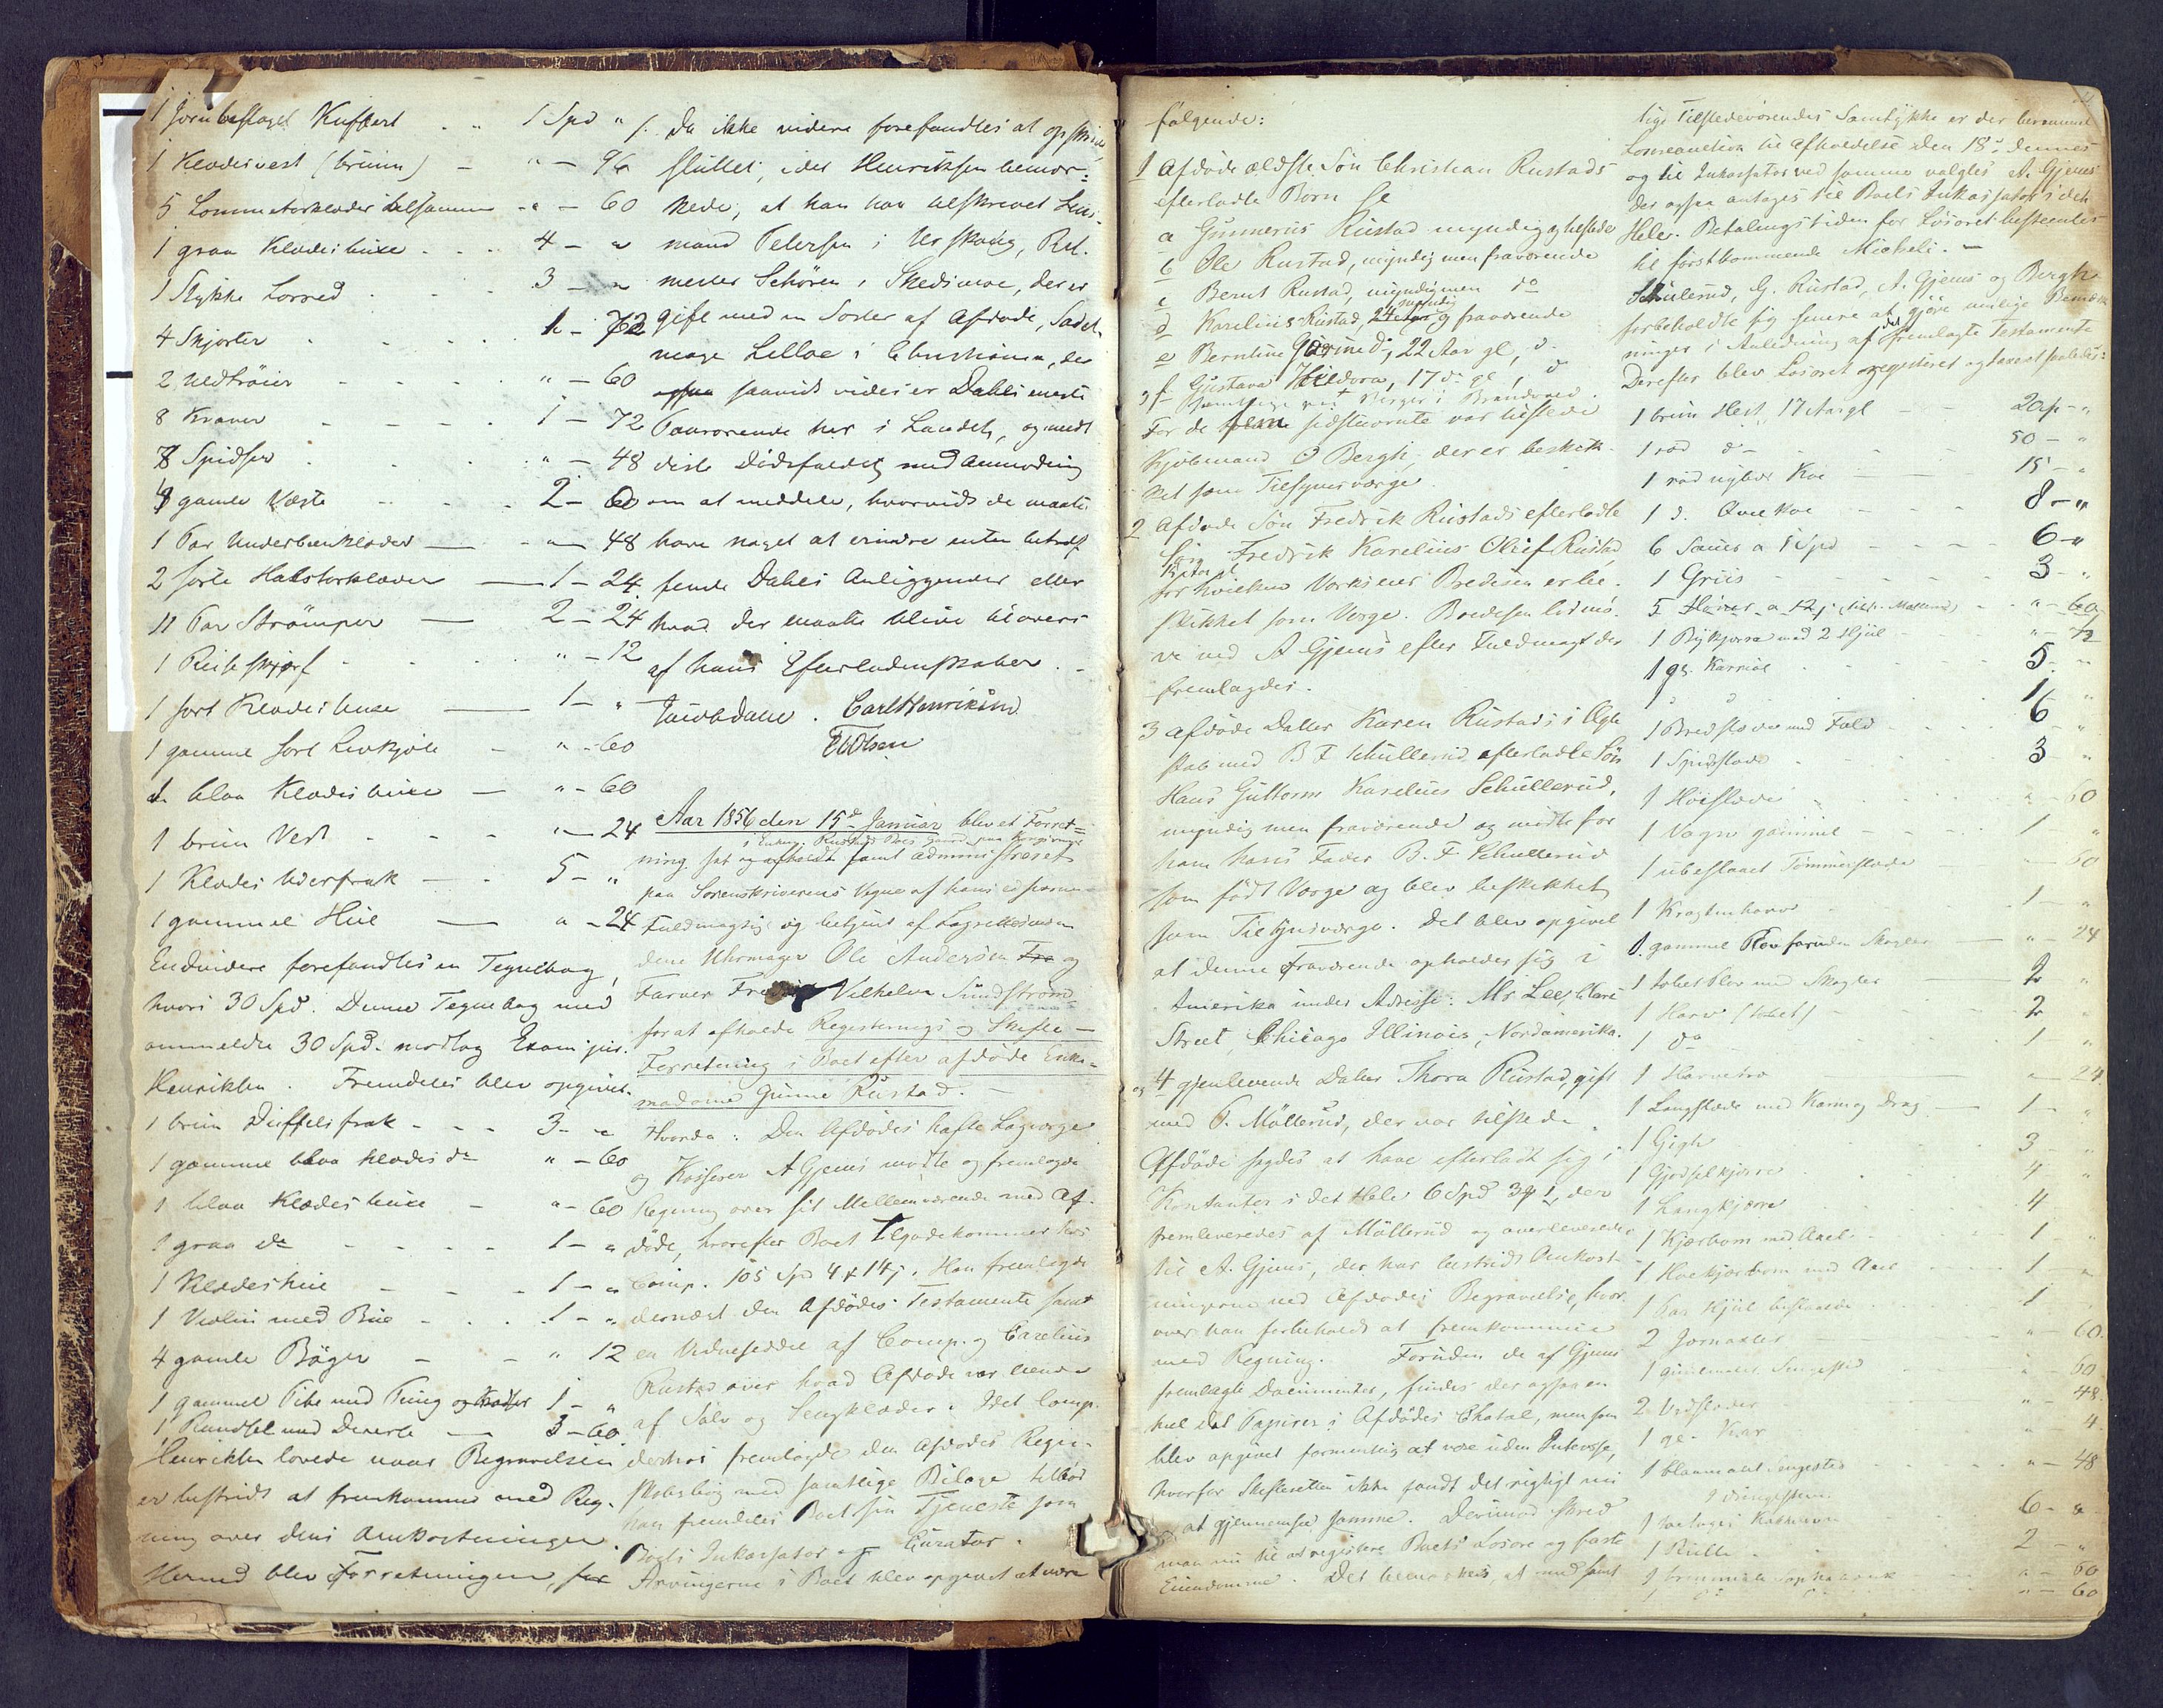 1 Jernbeslaget Kuffert . . 1 Spd "
1 Klædesvest (bruun) - " - 96
5 Lommetørklæder tilsammen - " - 60
1 graa Klædesbuxe . . . 4 - "
1 Stykke Lærred . . . 3 - "
4 Skjorter . . . . 1 - 72
2 Uldtrøier - - - - " - 60
8 Kraver - - - . 1 - 72
8 Spidser . . . " - 48
gamle Væste - - - 2 - 60
1 Par Underbeenklæder - " - 48
2 sorte Halstørklæder - 1 - 24
11 Par Strømper - 2 - 24
1 Reiseskjærf - . . " - 12
1 sort Klædesbuxe - 1 - "
1 gammel sort Livkjole - " - 60
1 blaa Klædesbuxe - " - 60
1 bruun Vest - - - " - 24
1 Klædes Uderfrak - - 5 - "
1 gammel Hue - " - 24
Endvidere forefandtes en Tegnebog,
hvori 30 Spd. Denne Tegnebog med
ommeldte 30 Spd. modtog Exam. jur.
Henriksen. Fremdeles blev opgivet.
1 bruun Duffelsfrak - - - 3 - "
1 gammel blaa Klædes do " - 60
1 blaa Klædesbuxe - " - 60
1 graa do - - - - 1 - "
1 Klædeshue - - - 1 - "
1 Violin med Bue - . . 1 - "
4 gamle Bøger - - " 12
1 gammel Pibe med Pung og 1 - "
1 Randsel med - 3 - 60
Henriksen lovede naar Begravelsen
er bestridt at fremkomme med Reg-
ning over dens Omkostninger.
Hermed blev Forretningen, for
Da ikke videre forefandtes at opskrive,
sluttet, idet Henriksen bemær-
kede, at han har tilskrevet Lens-
mand Petersen i Urskoug, Rit-
mester Schøren i Skedsmoe, der er
gift med en Søster af Afdøde, Sadel-
mager Lilloe i Christiania, der
ogsaa saavidt vides er Dahls eneste
Paarørende her i Landet, og med
Dødsfaldet med Anmodning
om at meddele, hvorvidt de maatte
have noget at erindre enten betræf-
fende Dahls Anliggender eller
hvad der maatte blive tilovers
af hans Efterladenskaber. -
Jacob Dahl. Carl Henriksen
Olsen
Aar 1856 den 15de Januar blev et Forret-
ning sat og afholdt samt administreret
paa Sorenskriverens Vegne af hans edsvorne
Fuldmægtig og betjent af Lagrettesmæn-
dene Uhrmager Ole Andersen Fre og
Farver Fredrik Vilhelm Sundstrøm
for at afholde Registerings og Skifte -
Forretning i Boet efter afdøde Enke-
madame Gunne Rustad. -
Hvorda: Den Afdødes havte Lagværge
og Kasserer A Gjems mødte og fremlagde
Regning over sit Mellemværende med Af-
døde, hvorefter Boet Tilgodekommer hos
Comp. 105 Spd 4 # 14 s. Han fremlagde
dernæst den Afdødes Testamente samt
en Vidneseddel af Comp. og Carelius
Rustad over hvad Afdøde var eiende
af Sølv og Sengklæder. Idet Comp.
derhos fremlagde den Afdødes Regn-
skabsbog med samtlige Bilage tilbød
han fremdeles Boet sin Tjeneste som
Boets Inkassator og Curator.
Arvingerne i Boet blev opgivet at være
følgende:
1 Afdøde ældste Søn Christian Rustads
efterladte Børn
a Gunnerus Rustad myndig og tilstede
b Ole Rustad, myndig men fraværende
c Bernt Rustad, myndig men do
d Karelius Rustad, 24 Aar myndig og fraværende
e Berntine do, 22 Aar gl, do
f Gustava 17 do gl, do
For de fem sidstnævnte var tilstede
Kjøbmand O Bergh, der er beskik-
ket som Tilsynsværge.
2 Afdøde Søn Fredrik Rustads efterladte
Søn Fredrik Karelius Olief Rustad
for hvilken Bredesen er be-
skikket som Værge. Bredesen
ved A Gjems efter Fuldmagt der
fremlagdes.
3 Afdøde Datter Karen Rustads i Ægte
skab med B. F. Schullerud efterladte Søn
Hans Guttorm Karelius Schullerud,
myndig men fraværende og mødte for
ham hans Fader B. F. Schullerud
som født Værge og blev beskikket
som Tilsynsværge. Det blev opgivet
at denne Fraværende opholder sig i
Amerika under Adresse: Mr. Lee, Clark
Street, Chicago Illinois, Nordamerika.
og 4 gjenlevende Datter Thora Rustad, gift
med P. Møllerud, der var tilstede.
Afdøde sagdes at have efterladt sig i
Kontanter i det Hele 6 Spd 3 # 1 s, der
fremleveredes af Møllerud og overleveredes
til A. Gjems, der har bestridt Omkost-
ningerne ved Afdødes Begravelse, hvor-
over han forbeholdt at fremkomme
med Regning. Foruden de af Gjems
fremlagte Documenter, findes der ogsaa en
heel Del Papirer i Afdødes Chatol, men som
blev opgivet formentlig at være uden Interesse,
hvorfor Skifteretten ikke fandt det rigtigt nu
at gjennemsee samme. Derimod skred
man nu til at registere Boets Løsøre og faste
Eiendomme. Det bemærkes, at med samt
lige Tilstedeværendes Samtykke er der berammet
Løsøreauction til Afholdelse den 18de dennes
og til Inkassator ved samme valgtes A. Gjems
der ogsaa antages til Boets Inkassator i det
Hele. Betalingstiden for Løsøret bestemtes
til førstkommende Micheli. -
Schulerud, G. Rustad, A. Gjems og Bergh
forbeholdte sig senere at gjøre mulige Bemærk
ninger i Anledning af det fremlagte Testamente
Derefter blev Løsøret registeret og taxeret saaledes:
1 bruun Hest, 17 Aar gl - - 20 - "
1 rød do - - - - 50 - "
1 rød nybær Koe - 15 - "
1 d. Qvie Koe - - - 8 - "
6 Sauer a 1 Spd - - - - 6 - "
1 Griis - - - - - 3 - "
5 Høner a 12 s " - 60
1 Bykjærre med 2 Hjul - - " -
1 gl. Karriol . . . . 5 - "
1 Bredslæde med Fæld . . . 6 "
1 Spidsslæde . . . . 3 - "
1 Høislæde . . . . " - 60
1 Vogn gammel - - - 1 "
1 ubeslaaet Tømmerslæde - 60
1 Kragtenharv . . . 1 - "
1 gammel Plov foruden Skagler - " - 24
1 Plov med Skagler 2 "
1 Harv - - 2 "
1 do - - - 1 "
1 - 24
1 Langslæde med Karm og Drag - 1 - "
1 Gigh - - - 3 - "
1 Gjødselkjærre . . . 4 "
1 Langkjærre . . . 4 - "
1 med Axel . . 1 - "
1 med Axel - - 1 - "
1 Par Hjul beslaaede . . . 1 - "
2 Jernaxler - - " - 60
1 Sengested - " - 60
2 Vedslæder - " - 48
1 gl. Kar - " - 4
1 blaamalet Sengested - " - 48
6 - "
1 Rulle . . . 2 - "
" - 60
1 do do " - 60